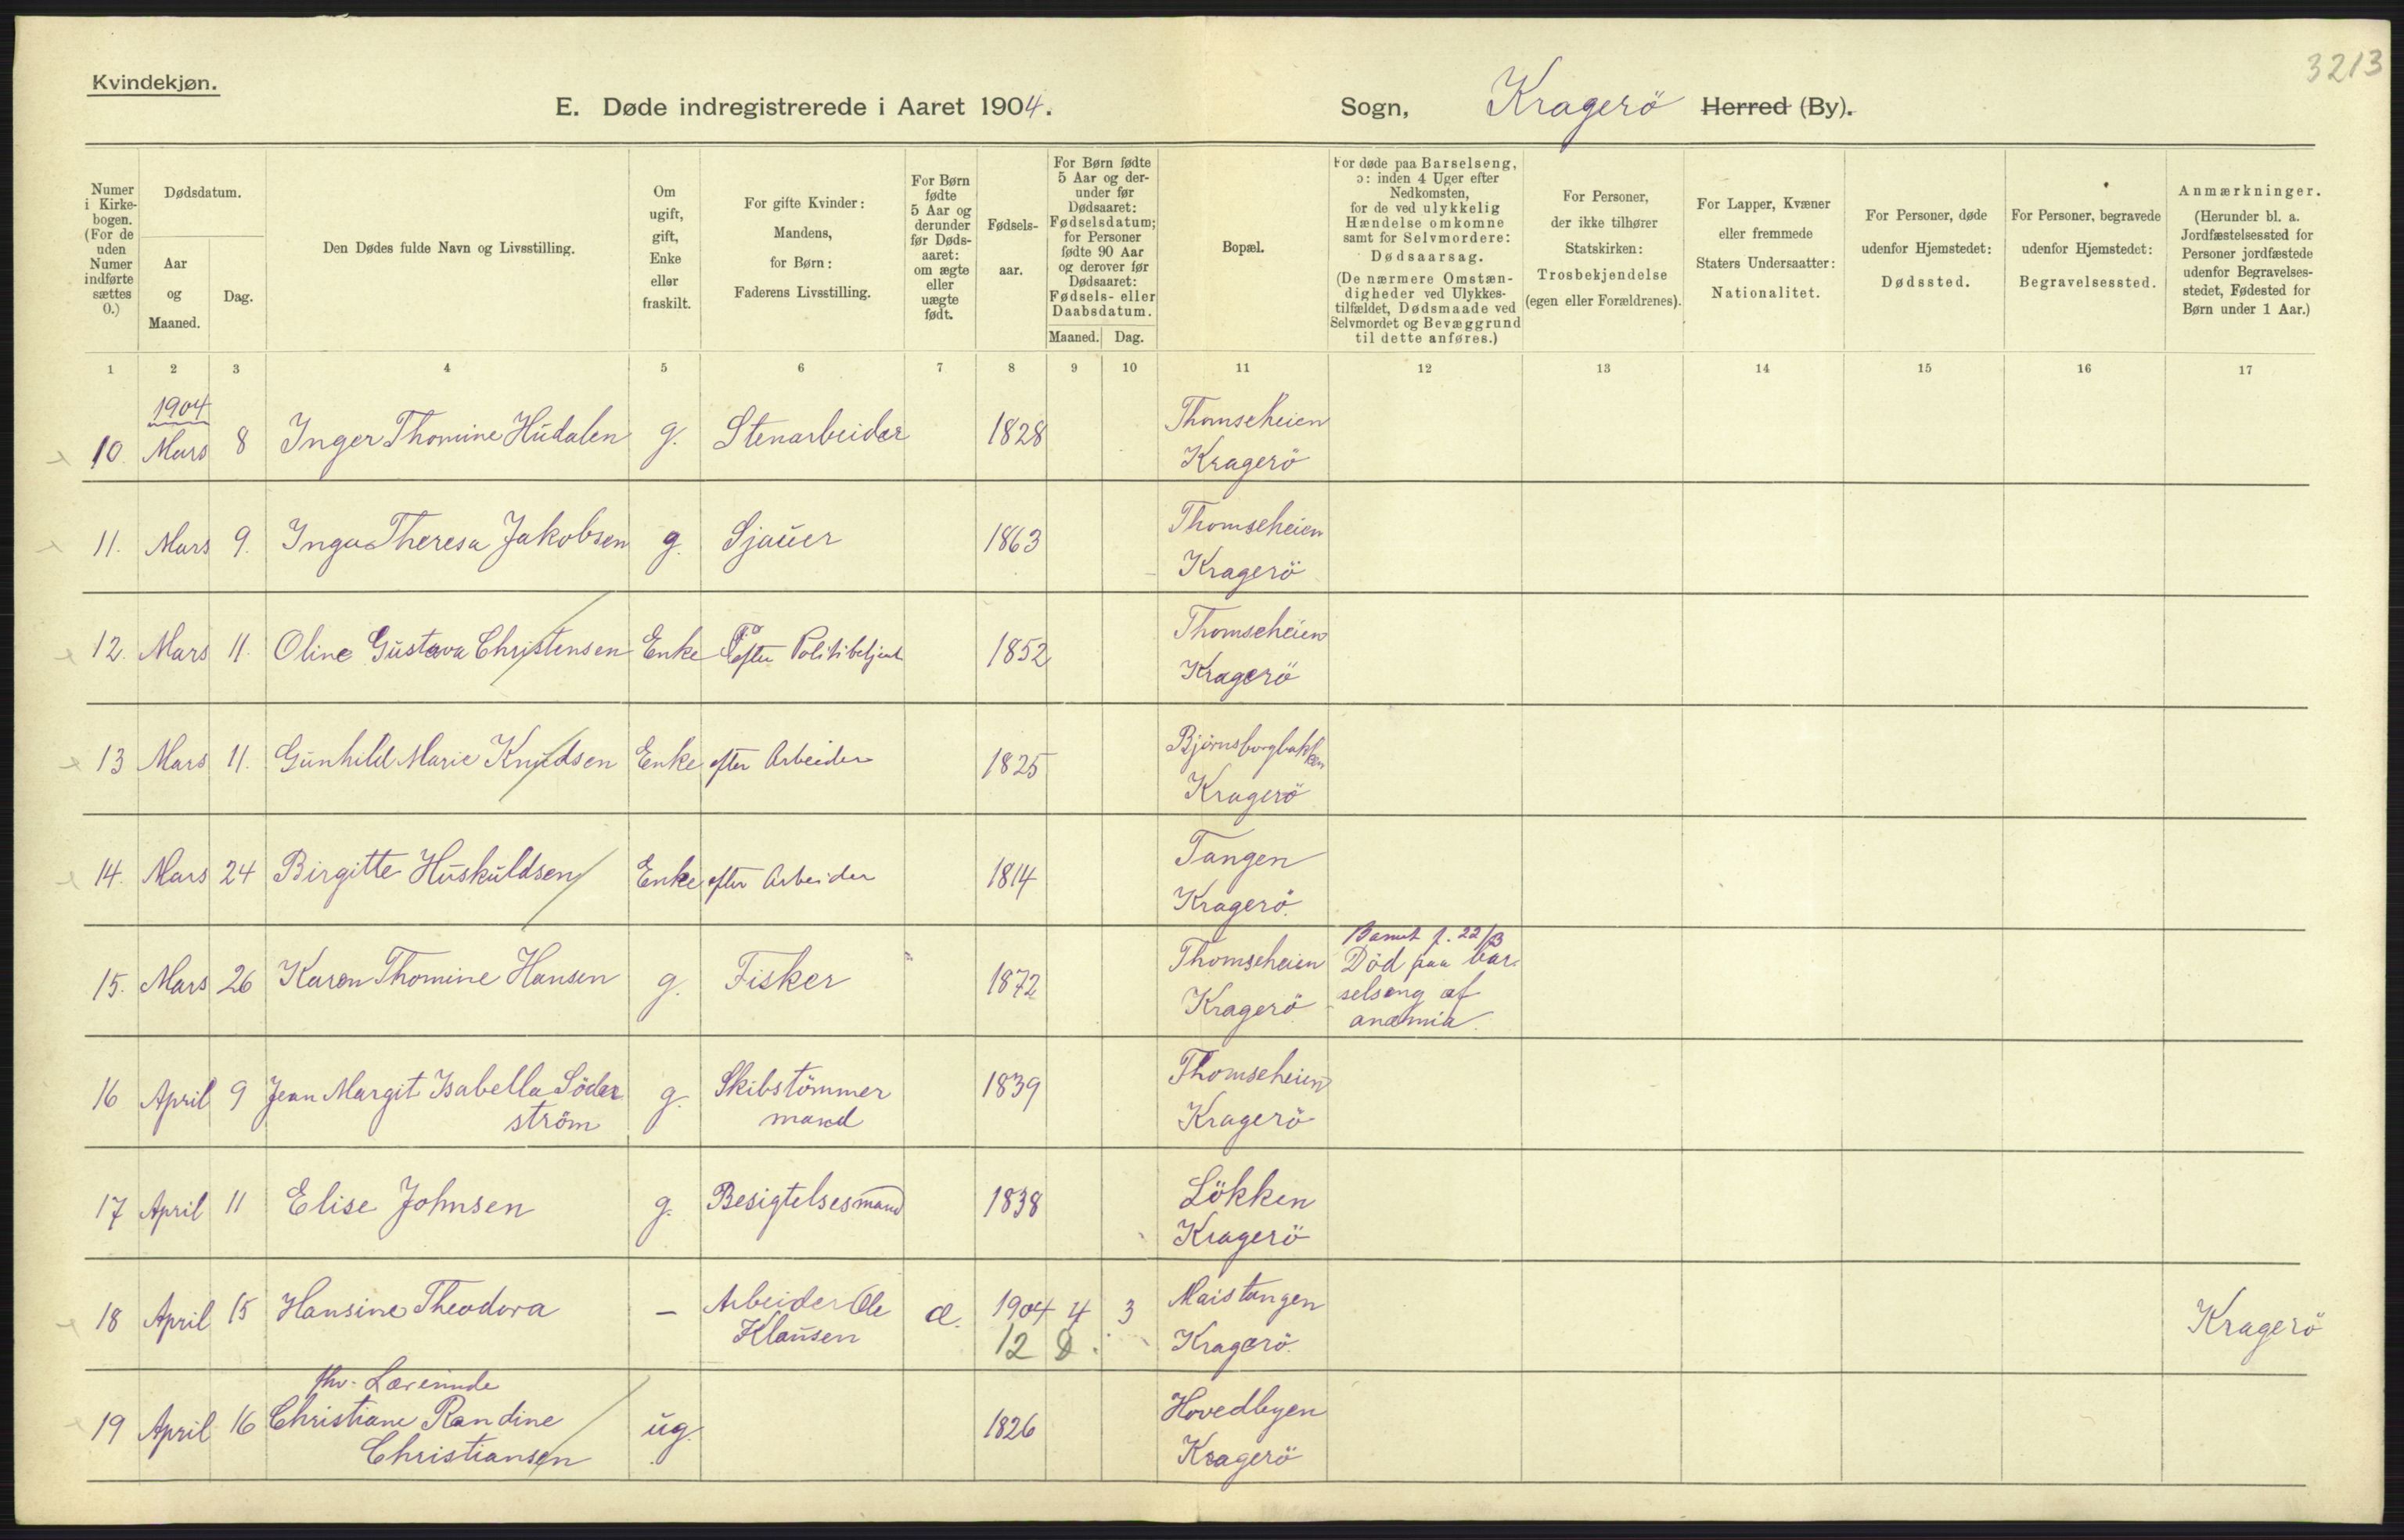 3213
Kvindekjøn.
E. Døde indregistrerede i Aaret 1904.
Sogn, Kragerö Herred (By).
Numer i Kirkebogen. (For de uden Numer indførte sættes 0.)
Dødsdatum.
Aar og Maaned.
Dag.
Den Dødes fulde Navn og Livsstilling.
Om ugift, gift, Enke eller fraskilt.
For gifte Kvinder: Mandens, for Børn: Faderens Livsstilling.
For Børn fødte 5 Aar og derunder før Dødsaaret: om ægte eller uægte født.
Fødselsaar.
For Børn fødte 5 Aar og derunder før Dødsaaret: Fødselsdatum; for Personer fødte 90 Aar og derover før Dødsaaret: Fødsels- eller Daabsdatum.
Maaned. Dag.
Bopæl.
For døde paa Barselseng, ɔ: inden 4 Uger efter Nedkomsten, for de ved ulykkelig Hændelse omkomne samt for Selvmordere: Dødsaarsag. (De nærmere Omstændigheder ved Ulykkestilfældet, Dødsmaade ved Selvmordet og Bevæggrund til dette anføres.)
For Personer, der ikke tilhører Statskirken: Trosbekjendelse (egen eller Forældrenes).
For Lapper, Kvæner eller fremmede Staters Undersaatter: Nationalitet.
For Personer, døde udenfor Hjemstedet: Dødssted.
For Personer, begravede udenfor Hjemstedet: Begravelsessted.
Anmærkninger. (Herunder bl. a. Jordfæstelsessted for Personer jordfæstede udenfor Begravelsesstedet, Fødested for Børn under 1 Aar.)
1 2 3 4 5 6 7 8 9 10 11 12 13 14 15 16 17
1904
10. Mars 8 Inger Thomine Hudalen g. Stenarbeider 1828 Thomseheien
Kragerö
11. Mars 9. Inga Theresa Jakobsen g. Sjauer 1863 Thomseheien
Kragerö
12. Mars 11. Oline Gustava Christensen Enke Efter Politibetjent 1852 Thomseheien
Kragerö
13 Mars 11. Gunhild Marie Knudsen Enke efter Arbeider 1825 Bjørnsborgbakken
Kragerö
14. Mars 24 Birgitte Huskuldsen Enke efter Arbeider 1814 Tangen
Kragerö.
15. Mars 26 Karen Thomine Hansen g. Fisker 1872 Thomseheien
Kragerö
Barnet f. 22/3
Död paa bar-
selseng af
anæmia.
16 April 9 Jean Margit Isabella Söder
ström g. Skibstömmer
mand 1839 Thomseheien
Kragerö
17 April 11 Elise Johnsen g. Besigtelsesmand 1838 Lökken
Kragerö
18 April 15 Hansine Theodora – Arbeider Ole
Klausen æ. 1904 4 3 Maistangen
12 D. Kragerö. Kragerö
fhv. Lærerinde
19 April 16 Christiane Randine
Christiansen ug. 1826 Hovedbyen
Kragerö